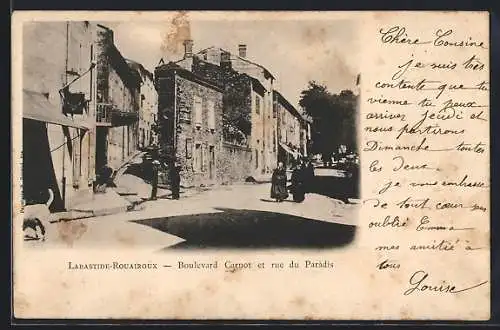 Chère Cousine
je suis très
contente que tu
vienne tu peux
arriver jeudi et
nous partirons
Dimanche toutes
les deux.
Je vous embrasse
de tout cœur sans
oublié Emma
mes amitié à
tous
Louise
LABASTIDE-ROUAIROUX — Boulevard Carnot et rue du Paradis